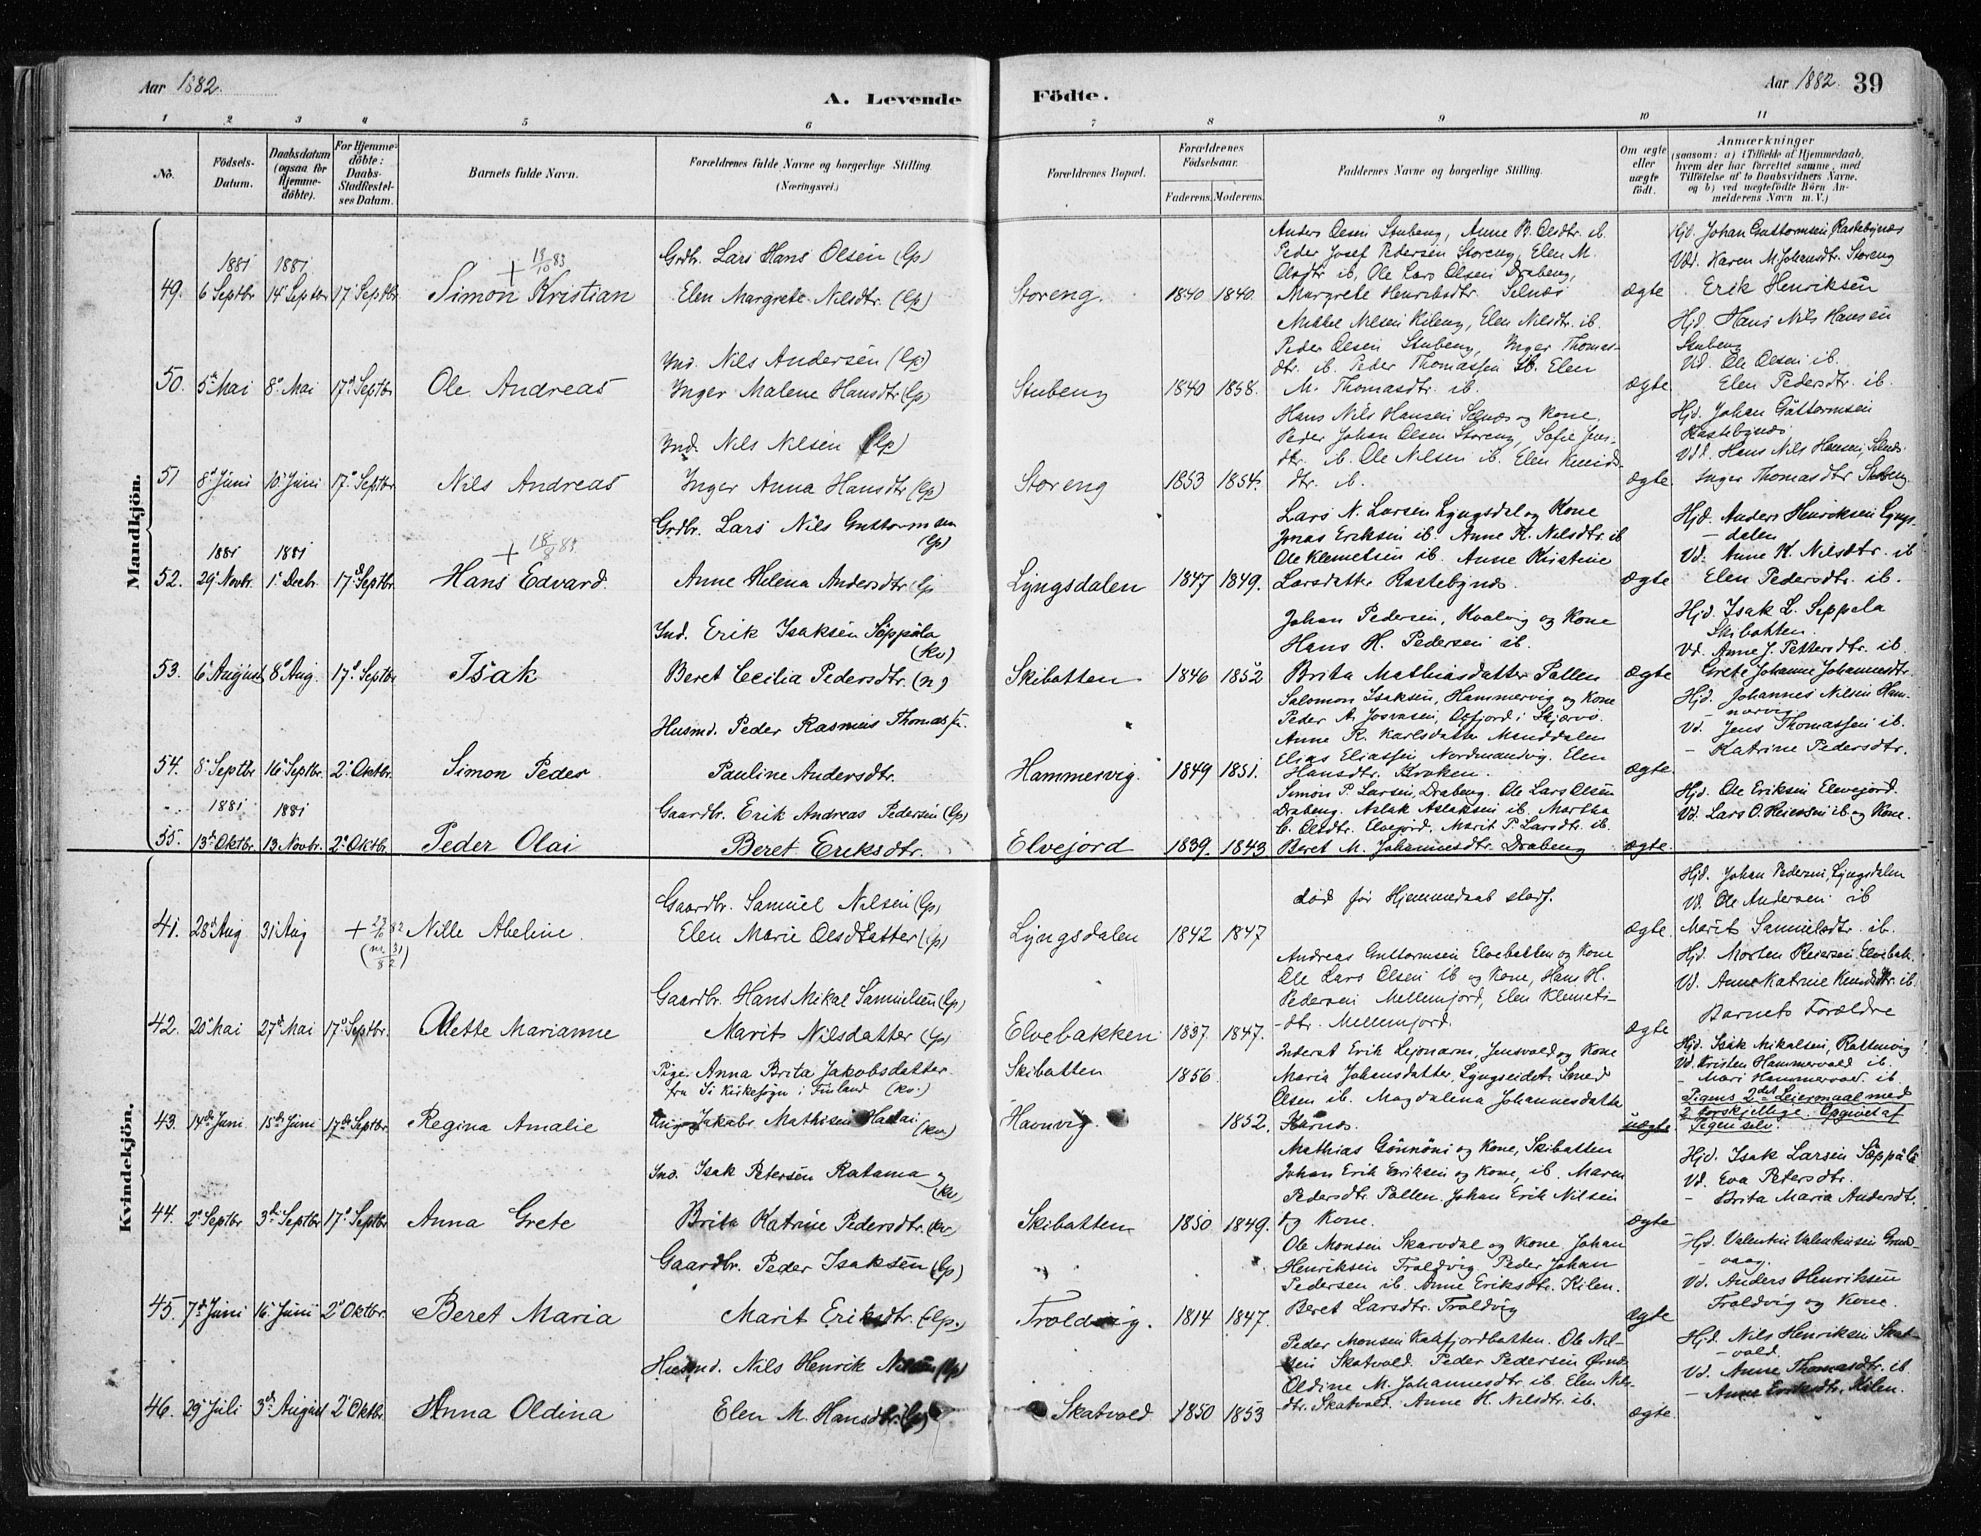 Aar 1882.
A. Levende
Födte.
Aar 1882. 39
1 2 3 4 5 6 7 8 9 10 11
No.
Födsels-Datum.
Daabsdatum (ogsaa for Hjemmedöbte).
For Hjemmedöbte: Daabs-Stadfæstelses Datum.
Barnets fulde Navn.
Forældrenes fulde Navne og borgerlige Stilling (Næringsvei.)
Forældrenes Bopæl.
Forældrenes Födselsaar.
Faderens. Moderens.
Faddernes Navne og borgerlige Stilling.
Om ægte eller uægte födt.
Anmærkninger
(saasom: a) i Tilfælde af Hjemmedaab, hvem der har forrettet samme, med Tilföielse af to Daabsvidners Navne, og b) ved uægtefödte Börn Anmelderens Navn m. V.)
Mandkjön.
1881 1881 + 13/10 83
49. 6 Septbr 14 Septbr 17 Septbr Simon Kristian
Grdbr. Lars Hans Olsen (lp)
Elen Margrete Nilsdtr. (lp)
Storeng. 1840 1840.
Anders Olsen Stubeng, Anne B. Olsdtr. ib.
Peder Josef Pedersen Storeng, Elen M.
Olsdtr ib, Ole Lars Olsen Drabeng,
Margrete Henriksdtr. Selnæs
ægte
Hjd. Johan Guttormsen, Rastebynæs
Vd. Karen M. Johansdtr. Storeng
Erik Henriksen
50. 5 Mai 8 Mai 17 Septbr Ole Andreas
Ind. Nils Andersen (lp)
Inger Malene Hansdtr (lp)
Stubeng 1840 1858.
Mikkel Nilsen Kileng, Elen Nilsdtr. ib.
Peder Olsen Stubeng, Inger Thomas-
dtr. ib. Peder Thomassen ib. Elen
M. Thomasdtr. ib.
ægte
Hjd. Hans Nils Hansen
Stubeng
Vd. Ole Olsen ib.
Elen Pedersdtr. ib.
51 8 Juni 10 Juni 17 Septbr Nils Andreas
Ind. Nils Nilsen (lp)
Inger Anna Hansdtr (lp)
Storeng 1853 1854.
Hans Nils Hansen Selnæs og Kone,
Peder Johan Olsen Storeng, Sofie Jens-
dtr. ib. Ole Nilsen ib. Elen
dtr. ib.
ægte
Hjd. Johan Guttormsen
Rastebynæs
Vd. Hans Nils Hansen, Selnæs
Inger Thomasdtr Stubeng
1881 1881 + 18/8 83
52. 29 Novbr. 1 Decbr. 17 Septbr. Hans Edvard.
Grdbr. Lars Nils Guttormsen
(lp)
Anne Helena Andersdtr (lp
Lyngsdalen 1847 1849.
Lars N. Larsen Lyngsdal og Kone
Jonas Eriksen ib. Anne K. Nilsdtr. ib
Ole Klemetsen ib. Anne Kristine
Larsdatter Rastebynæs.
ægte
Hjd. Anders Henriksen Lyngs-
dalen
Vd. Anne K. Nilsdtr. ib
Elen Pedersdtr. ib.
53. 6 August 8 Aug. 17 Septbr Isak
Ind. Erik Isaksen Seppala
(kv)
Beret Cecilia Pedersdtr. (n)
Skibotten 1846 1852
Johan Pedersen, Kvalvig og Kone
Hans H. Pedersen ib.
Brita Mathiasdatter Pallen
ægte
Hjd. Isak L. Seppala
Skibotten.
Vd. Anne J. Pettersdtr. ib.
Grete Johanne Johannesdtr.
54. 8 Septbr 16 Septbr. 2 Oktbr. Simon Peder
Husmd. Peder Rasmus Thomassen.
Pauline Andersdtr.
Hammervig. 1849 1851.
Salomon Isaksen, Hammervig og Kone
Peder A. Josvasen, Oxfjord i Skjærvø.
Anne R. Karlsdatter Manddalen
Elias Eliassen Nordmandvig. Elen
Hansdtr. Kroken.
ægte.
Hjd. Johannes Nilsen Ham-
mervig
Vd. Jens Thomassen ib.
- Katrine Pedersdtr.
1881 1881
55. 13 Oktbr. 13 Novbr. 2 Oktbr. Peder Olai
Gaardbr. Erik Andreas Pedersen (lp)
Beret Eriksdtr.
Elvejord 1839. 1843
Simon P. Larsen, Drabeng. Ole Lars Olsen
Drabeng. Aslak Aslaksen ib. Martha
C. Olsdtr. Elvejord. Marit P. Larsdtr. ib.
Beret M. Johannesdtr. Drabeng
ægte.
Hjd. Ole Eriksen Elvejord.
Vd. Lars O. Heiensen ib og Kone.
Kvindekjön.
41. 28 Aug 31 Aug + 23/10 82 Nille Abeline.
Gaardbr. Samuel Nilsen (lp)
Elen Marie Olsdtatter (lp)
Lyngsdalen 1842 1847
død før Hjemmedaab stadf.
ægte.
Hjd. Johan Pedersen, Lyngsdalen
Vd. Ole Andersen ib
Marit Samuelsdtr. ib.
42. 20 Mai 27 Mai 17 Septbr. Olette Marianne
Gaardbr. Hans Mikal Samuelsen (lp)
Marit Nilsdatter (lp)
Elvebakken 1837. 1847.
Andreas Guttormsen Elvebakken og Kone
Ole Lars Olsen ib og Kone, Hans H.
Pedersen Mellemjord, Elen Klemets-
-dtr. Mellemjord.
ægte
Hjd. Morten Reiersen Elvebak.
Vd. Anne Katrine ib.
Barnets Forældre
43. 14 Juni 15 Juni 17 Septbr. Regina Amalie
Pige. Anna Brita Jakobsdatter
fra Si Kirkesogn i Finland (kv.)
Ung Jakob Mathisen (kv)
Skibotten 1856
Havnvig. 1852.
Inderst Erik Lejonarm, Jensvold og Kone
Maria Johansdatter, Lyngseidet Smed
Olsen ib. Magdalina Johannesdatter
Karnæs.
uægte
Hjd. Isak Mikalsen, Rottenvig
Vd. Kristen Hammervold ib.
- Mari Hammervold ib.
Pigens 2det Leiermaal med
2 forskjellige. Opgivet af
Pigen selv.
44. 2 Septbr 3 Septbr 17 Septbr Anna Grete
Ind. Isak Petersen Ratama
(kv
Brita Katrine Pedersdtr. (kv)
Skibotten 1850 1849.
Mathias Gønnøni og Kone, Skibotten
Johan Erik Eriksen og Kone, ib. Maren
Pedersdtr. Pallen. Johan Erik Nilsen
og Kone.
ægte
Hjd. Isak Larsen Seppala
Vd. Eva Petersdtr.
- Brita Maria Andersdtr.
45. 7 Juni 16 Juni 2 Oktbr. Beret Maria
Gaardbr. Peder Isaksen (lp)
Marit Eriksdtr. (lp.)
Troldvig. 1814 1847.
Ole Monsen Skarvdal og Kone. Johan
Henriksen Troldvig Peder Johan
Pedersen ib. Anne Eriksdtr. Kilen.
Beret Larsdtr. Troldvig
ægte
Hjd. Valentin Valentinsen Grund-
vaag.
Vd. Anders Henriksen
Troldvig og Kone.
46. 29 Juli 3 August 2 Oktbr. Anna Oldina
Husmd. Nils Henrik Nilsen (lp)
Elen M. Hansdtr. (lp)
Skatvold 1850 1853
Peder Monsen Kaafjordbotten. Ole Nil-
sen Skatvold. Peder Pedersen
Oldine M. Johannesdtr. ib. Elen Nils-
dtr. Skatvold. Anne H. Nilsdtr. ib.
ægte.
Hjd. Nils Henriksen Skat-
vold.
Vd. Anne Thomasdtr. ib
- Anne Eriksdtr. Kilen.